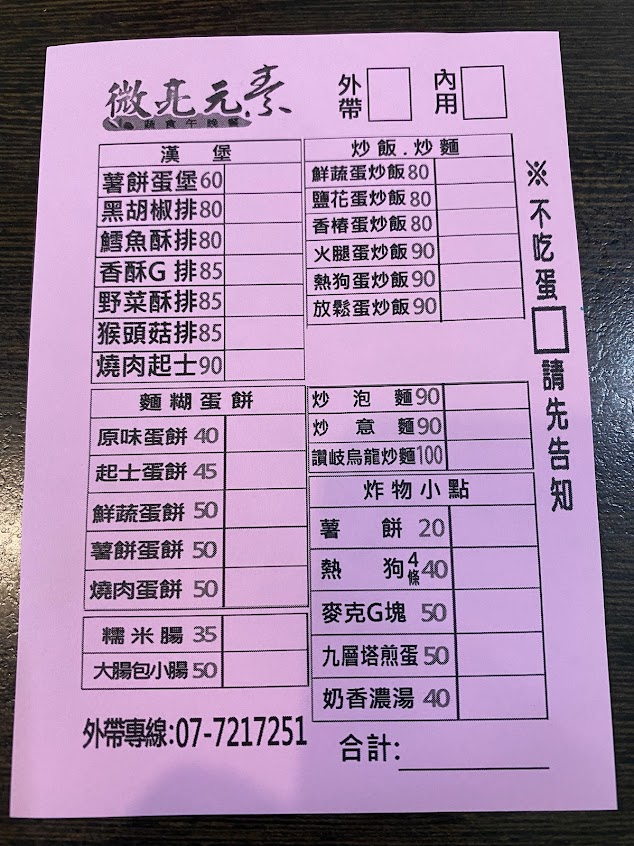 微亮元素
蔬食午晚餐
外帶
內用
漢 堡
薯餅蛋堡60
黑胡椒排80
鱈魚酥排80
香酥G 排85
野菜酥排85
猴頭菇排85
燒肉起士90
麵糊蛋餅
原味蛋餅 40
起士蛋餅 45
鮮蔬蛋餅 50
薯餅蛋餅 50
燒肉蛋餅 50
糯米腸 35
大腸包小腸50
外帶專線:07-7217251
炒飯.炒麵
鮮蔬蛋炒飯80
鹽花蛋炒飯80
香椿蛋炒飯80
火腿蛋炒飯90
熱狗蛋炒飯90
放鬆蛋炒飯90
炒 泡 麵90
炒 意 麵90
讚岐烏龍炒麵100
炸物小點
薯 餅 20
熱 狗4條40
麥克G塊 50
九層塔煎蛋50
奶香濃湯 40
合計:
※不吃蛋 請先告知